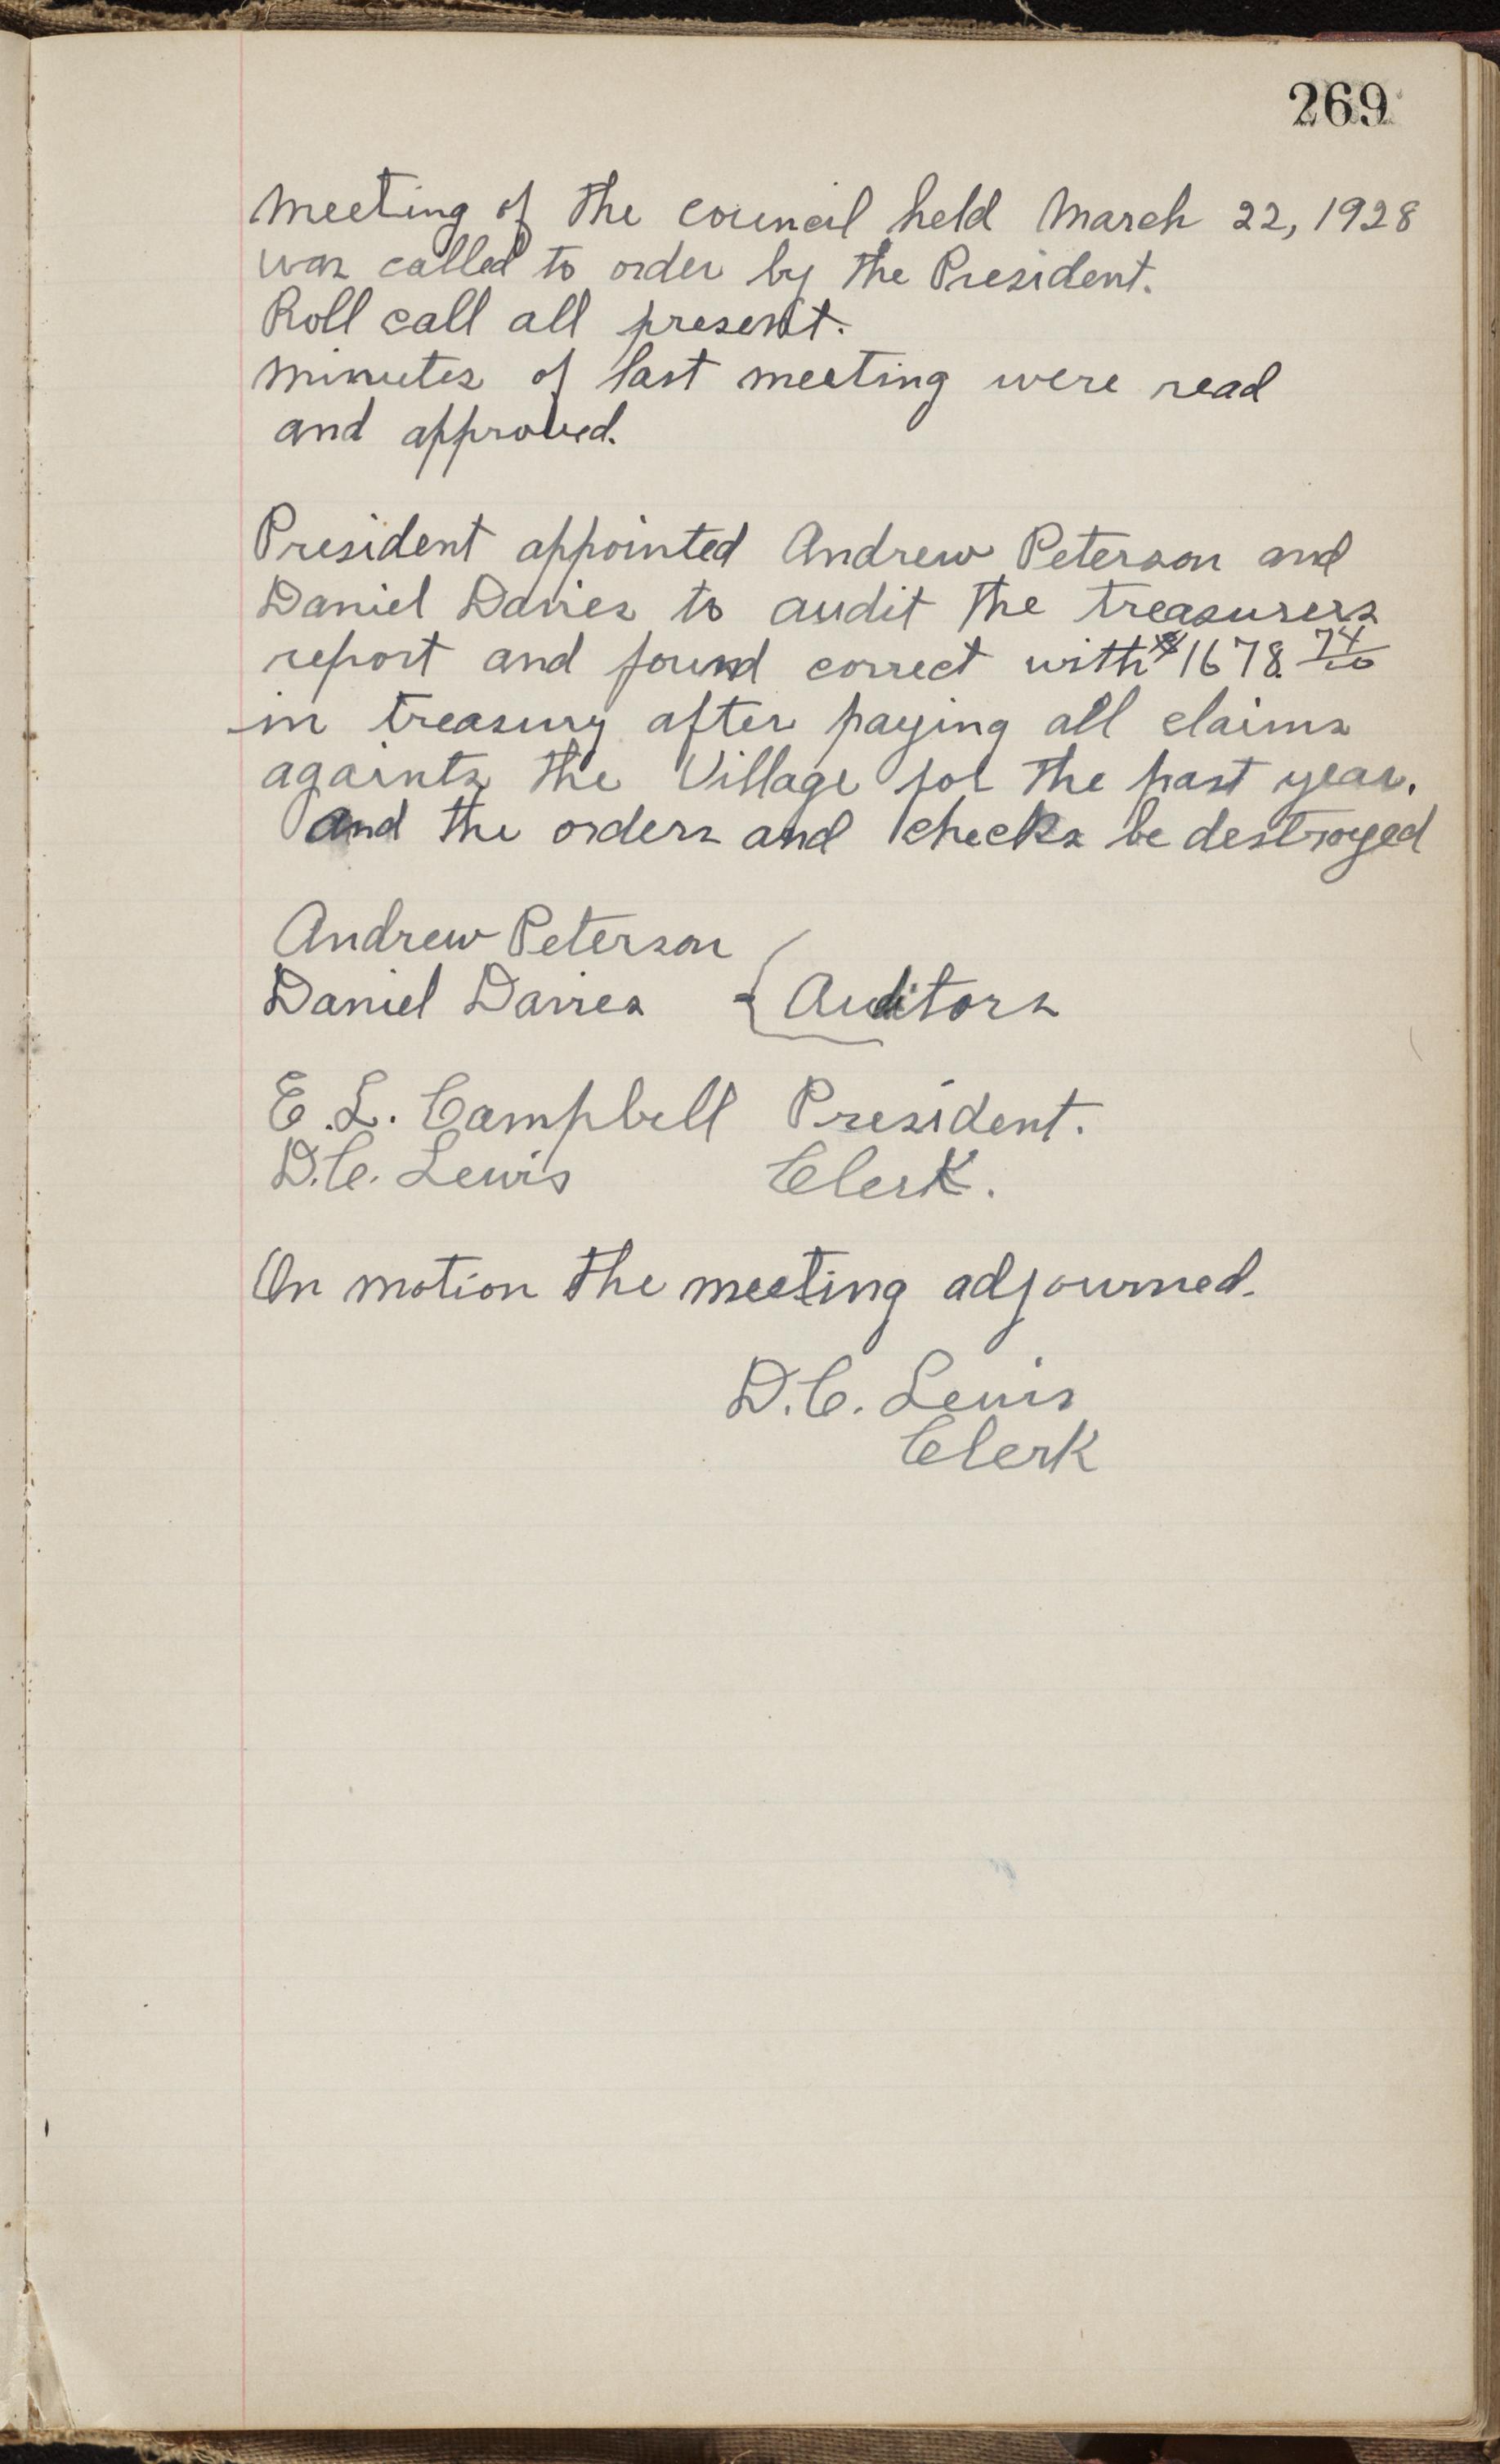 269
Meeting of the council held March 22, 1928
was called to order by the President.
Roll call all present.
Minutes of last meeting were read
and approved.
President appointed Andrew Peterson and
Daniel Davies to audit the treasurers
report and found correct with $1678. 74/100
in treasury after paying all claims
againts the Village for the past year.
And the orders and checks be destroyed
Andrew Peterson
Daniel Davies { Auditors
E. L. Campbell President.
D.C. Lewis Clerk.
On motion the meeting adjourned.
D.C. Lewis
Clerk